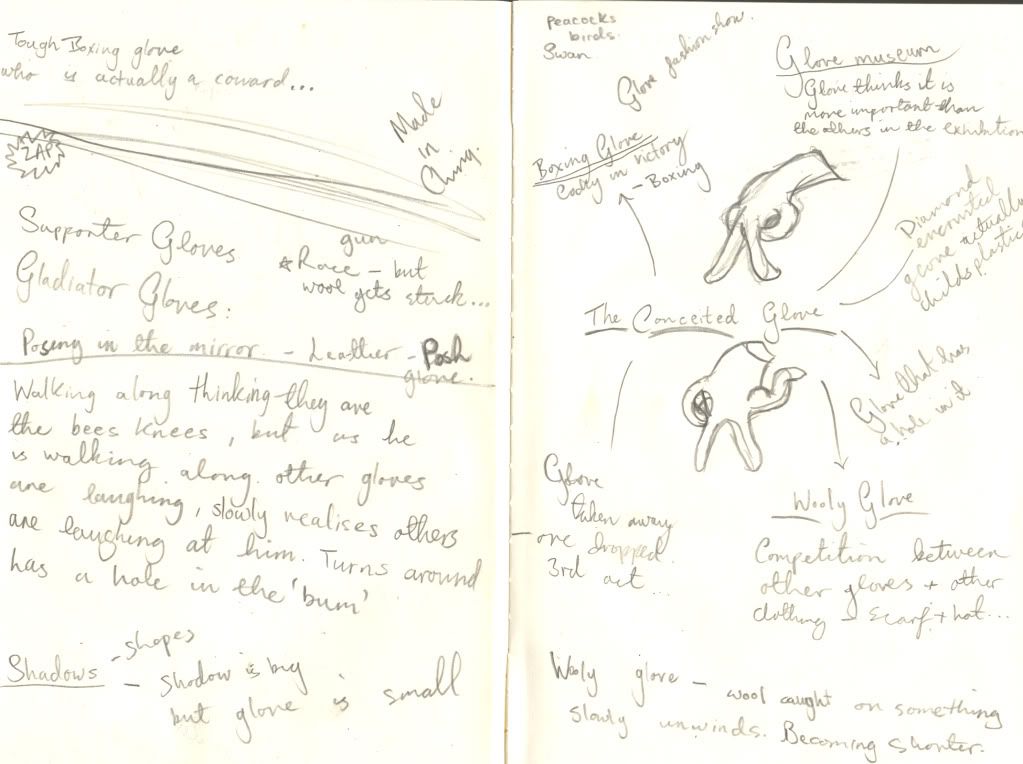 Tough Boxing glove
who is actually a coward...
Made
in
China.
ZAP
Supporter Gloves
Gladiator Gloves.
gun
* Race - but
wool gets stuck...
Posing in the mirror. - Leather - Posh
glove.
Walking along thinking they are
the bees knees, but as he
is walking along other gloves
are laughing, slowly realises others
are laughing at him. Turns around
has a hole in the 'bum'
Shadows - shapes
- shadow is big
but glove is small
Peacocks
birds.
Swan
Glove fashion show.
Glove museum
Glove thinks it is
more important than
the others in the exhibition
Boxing Glove
Cocky in victory
- Boxing
Diamond
encrusted
glove actually
childs plastic
The Conceited Glove
Glove that has
a hole in it
Glove
taken away
- one dropped.
3rd act...
Wooly Glove
Competition between
other gloves + other
clothing - scarf + hat...
Wooly glove - wool caught on something
slowly unwinds. Becoming shorter.